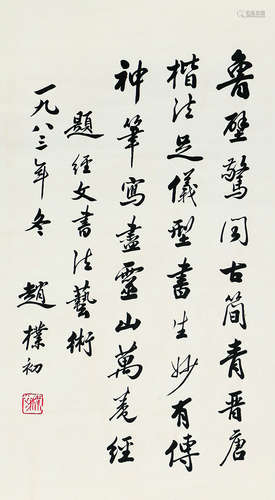 魯壁驚聞古簡青晋唐
楷法足儀型書生妙有傳
神筆寫盡靈山萬卷經
題經文書法藝術
一九八三年冬
趙樸初